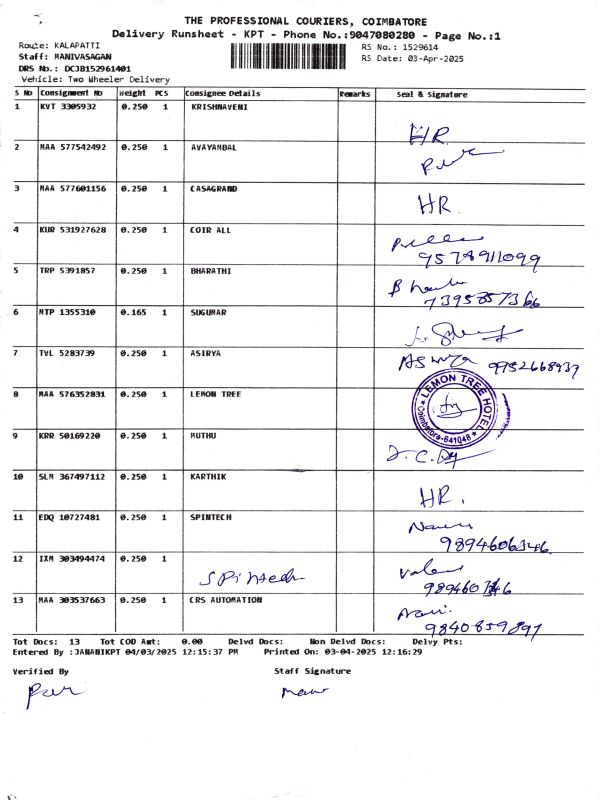 THE PROFESSIONAL COURIERS, COIMBATORE
Delivery Runsheet - KPT - Phone No.:9047080280 - Page No.:1
Route: KALAPATTI
RS No.: 1529614
Staff: MANIVASAGAN
RS Date: 03-Apr-2025
DRS No.: DCJB152961401
Vehicle: Two Wheeler Delivery
S No Consignment No Weight PCS Consignee Details Remarks Seal & Signature
1 KVT 3305932 0.250 1 KRISHNAVENI
HR
2 MAA 577542492 0.250 1 AVAYAMBAL
3 MAA 577601156 0.250 1 CASAGRAND
HR
4 KUR 531927628 0.250 1 COIR ALL
9578911099
5 TRP 5391857 0.250 1 BHARATHI
7395857366
6 MTP 1355310 0.165 1 SUGUMAR
7 TVL 5283739 0.250 1 ASIRYA
9952668937
8 MAA 576352831 0.250 1 LEMON TREE
LEMON TREE HOTEL
Coimbatore-641048
9 KRR 50169220 0.250 1 MUTHU
10 SLM 367497112 0.250 1 KARTHIK
HR.
11 EDQ 10727481 0.250 1 SPINTECH
9894606346
12 IXM 303494474 0.250 1
Spintech
13 MAA 303537663 0.250 1 CRS AUTOMATION
9840859897
Tot Docs: 13 Tot COD Amt: 0.00 Delvd Docs: Non Delvd Docs: Delvy Pts:
Entered By :JANANIKPT 04/03/2025 12:15:37 PM Printed On: 03-04-2025 12:16:29
Verified By Staff Signature